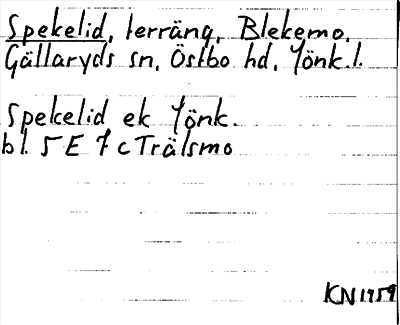 Spekelid, terräng, Blekemo,
Gällaryds sn, Östbo hd, Jönk. l.
Spekelid ek Jönk.
bl. 5 E 7 c Trälsmo
KN 1959